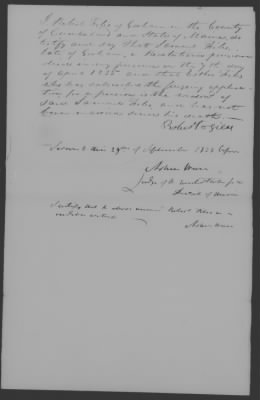 I Robert Files of Gorham in the County
of Cumberland and State of Maine do
testify and say that Samuel Files
late of Gorham, a Revolutionary pensioner
died in my presence on the 7th day
of April 1835 and that Esther Files
who has subscribed the foregoing applica-
tion for a pension is the widow of
said Samuel Files, and has not
been married since his death
Robert Files
Sworn to this 29th of September 1838 before
Judge of
State of Maine
I certify that the above named Robert Files is a
credible witness